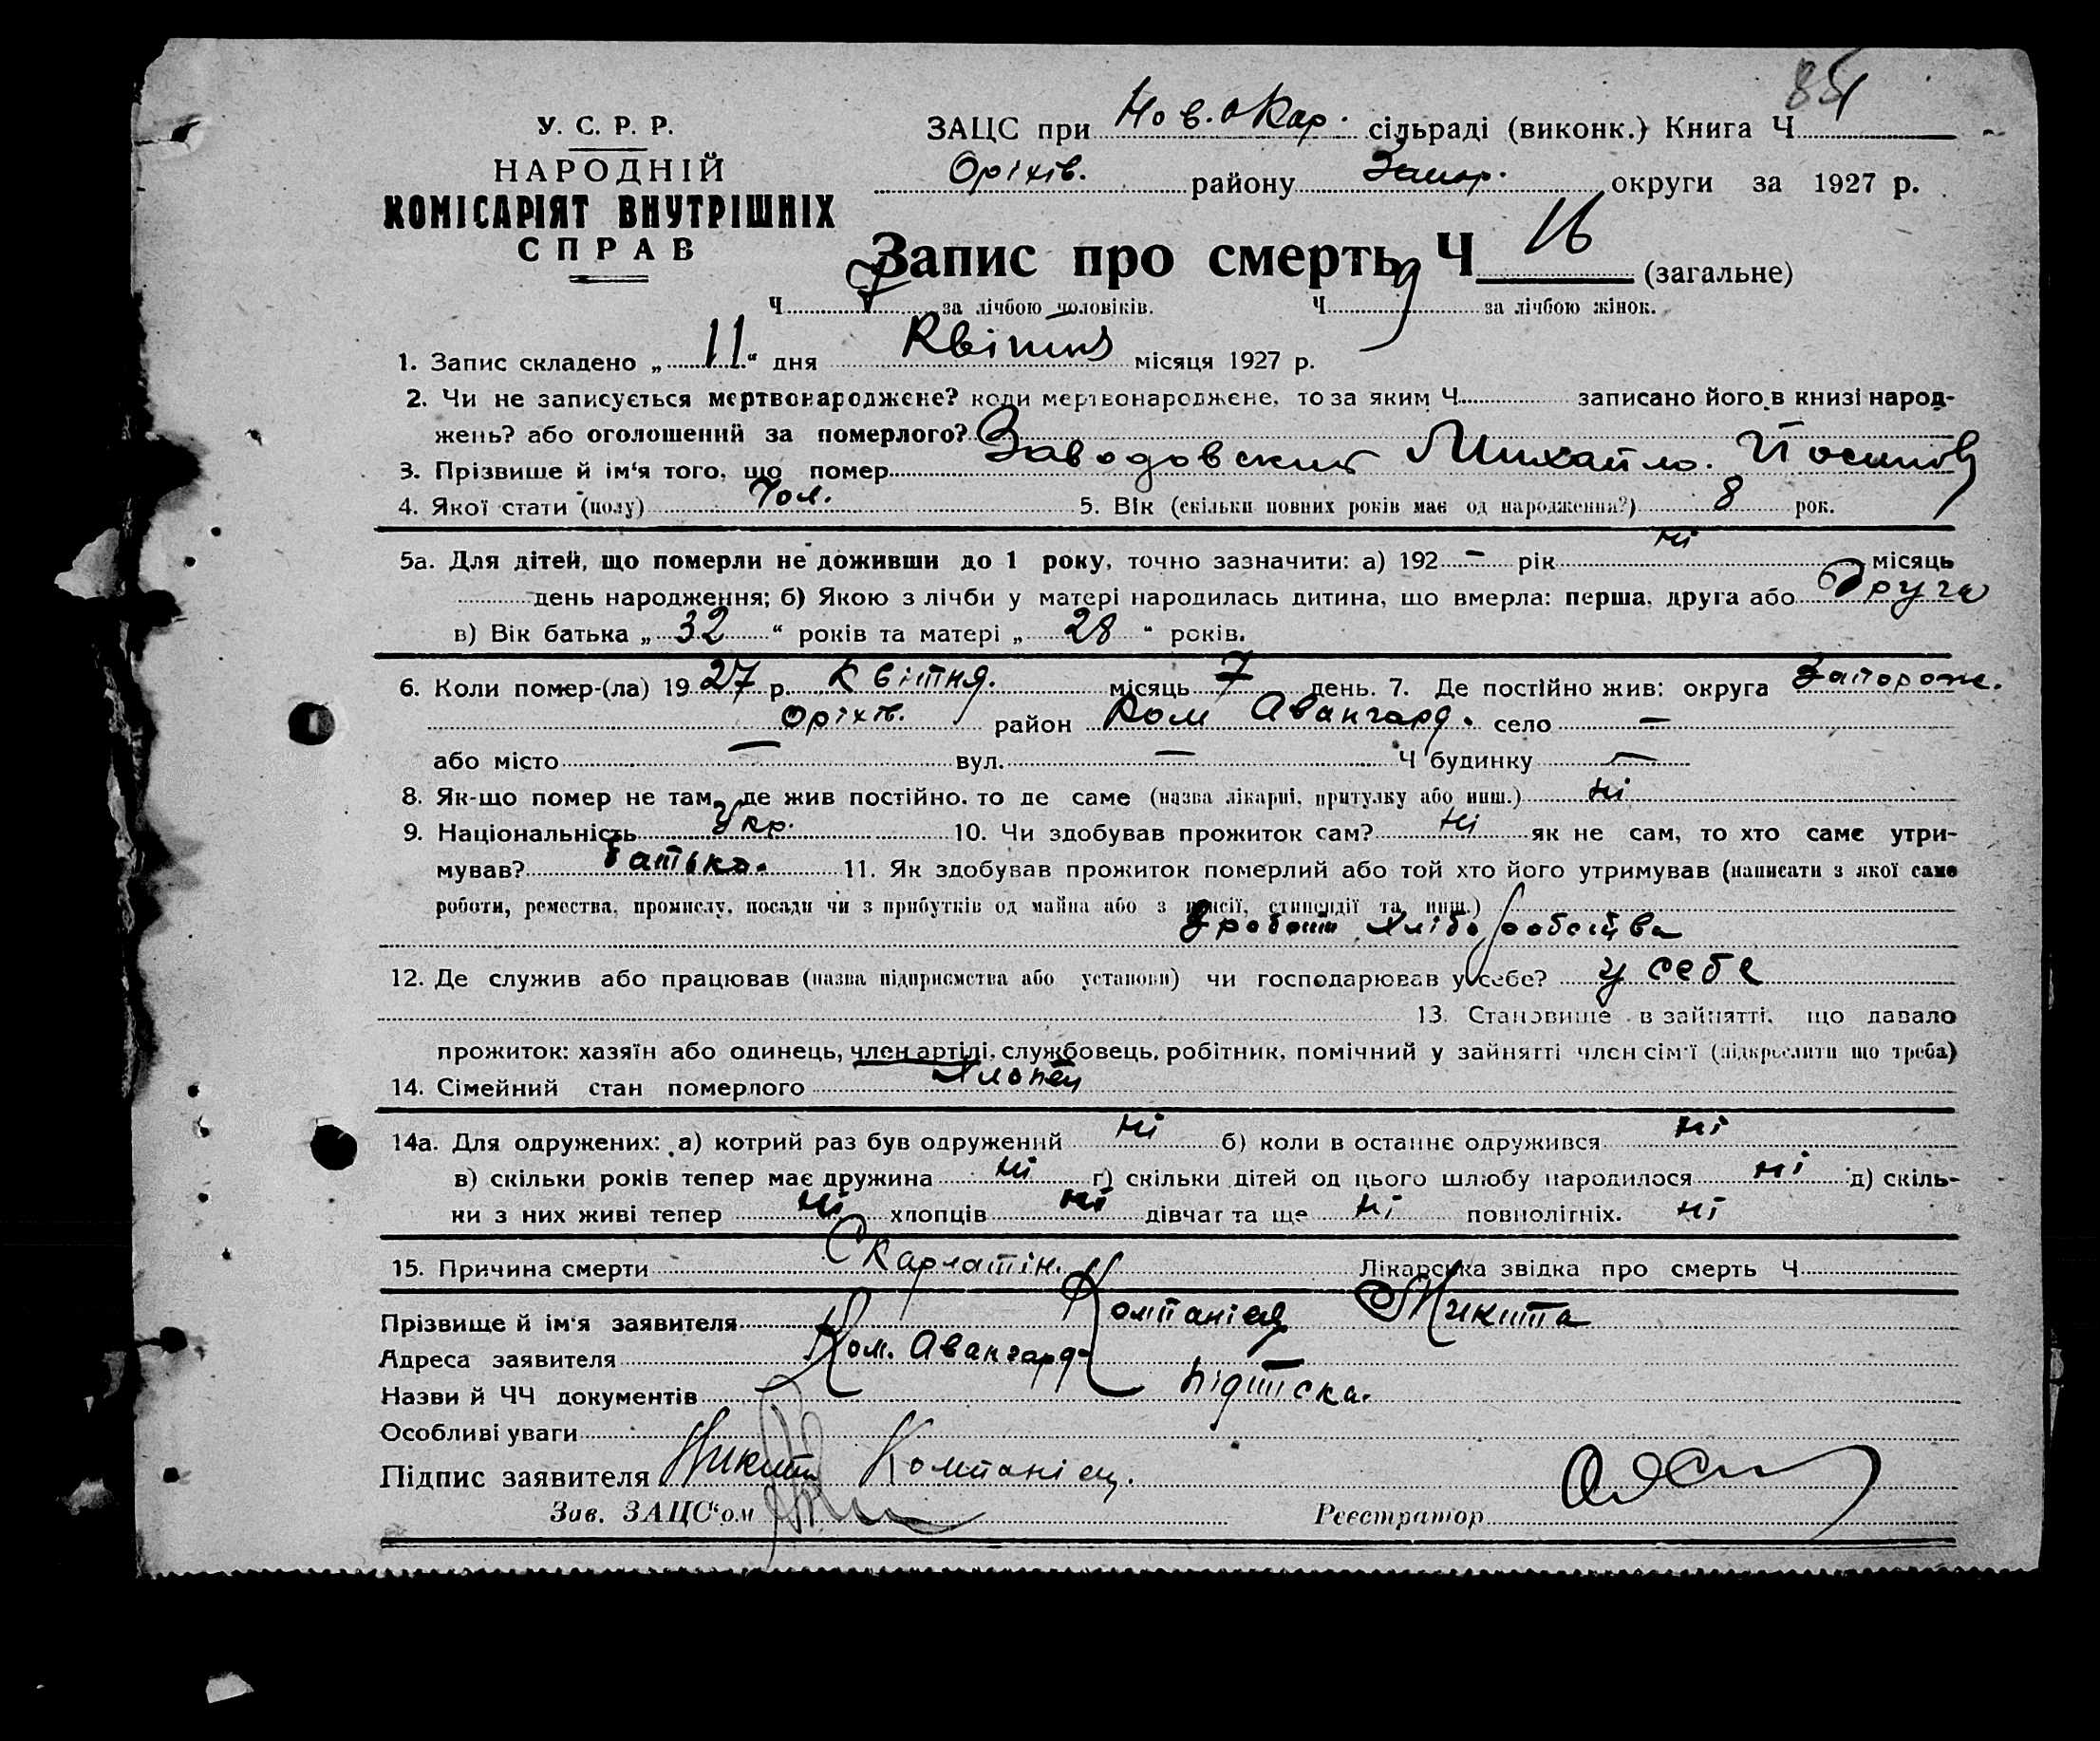 84
У. С. Р. Р.
НАРОДНІЙ
КОМІСАРІЯТ ВНУТРІШНІХ
СПРАВ
ЗАЦС при Нов.оКар. сільраді (виконк.) Книга Ч
Оріхів. району Запор. округи за 1927 р.
Запис про смерть Ч 16 (загальне)
Ч 7 за лічбою чоловіків. Ч 9 за лічбою жінок.
1. Запис складено „11“ дня Квітня місяця 1927 р.
2. Чи не записується мертвонароджене? коли мертвонароджене, то за яким Ч. записано його в книзі народ-
жень? або оголошений за померлого?
3. Прізвище й ім‘я того, що помер Заводовский Михайло. Йосипов
4. Якої стати (полу) Чол. 5. Вік (скільки повних років має од народження?) 8 рок.
5а. Для дітей, що померли не доживши до 1 року, точно зазначити: а) 192 — рік ні місяць
день народження; б) Якою з лічби у матері народилась дитина, що вмерла: перша, друга або Друга
в) Вік батька „32“ років та матері „28“ років.
6. Коли помер-(ла) 1927 р. Квітня. місяць 7 день. 7. Де постійно жив: округа Запорож.
Оріхів. район Ком Авангард. село —
або місто — вул. — Ч будинку —
8. Як-що помер не там, де жив постійно, то де саме (назва лікарні, притулку або инш.) ні
9. Національність Укр. 10. Чи здобував прожиток сам? ні як не сам, то хто саме утри-
мував? батько. 11. Як здобував прожиток померлий або той хто його утримував (написати з якої саме
роботи, ремества, промислу, посади чи з прибутків од майна або з пенсії, стипендії та инш.)
З роботи Хліборобства
12. Де служив або працював (назва підприємства або установи) чи господарював у себе? у себе
13. Становище в зайнятті, що давало
прожиток: хазяїн або одинець, член артілі, службовець, робітник, помічний у зайнятті член сім‘ї (підкреслити що треба)
14. Сімейний стан померлого Хлопец
14а. Для одружених: а) котрий раз був одружений ні б) коли в останнє одружився ні
в) скільки років тепер має дружина ні г) скільки дітей од цього шлюбу народилося ні д) скіль-
ки з них живі тепер ні хлопців ні дівчат та ще ні повнолітніх. ні
15. Причина смерти Скарлатін. Лікарська звідка про смерть Ч
Прізвище й ім‘я заявителя Компанієц Микита
Адреса заявителя Ком. Авангард
Назви й ЧЧ документів підписка.
Особливі уваги
Підпис заявителя Микита Компанієц.
Зав. ЗАЦС‘ом Реєстратор